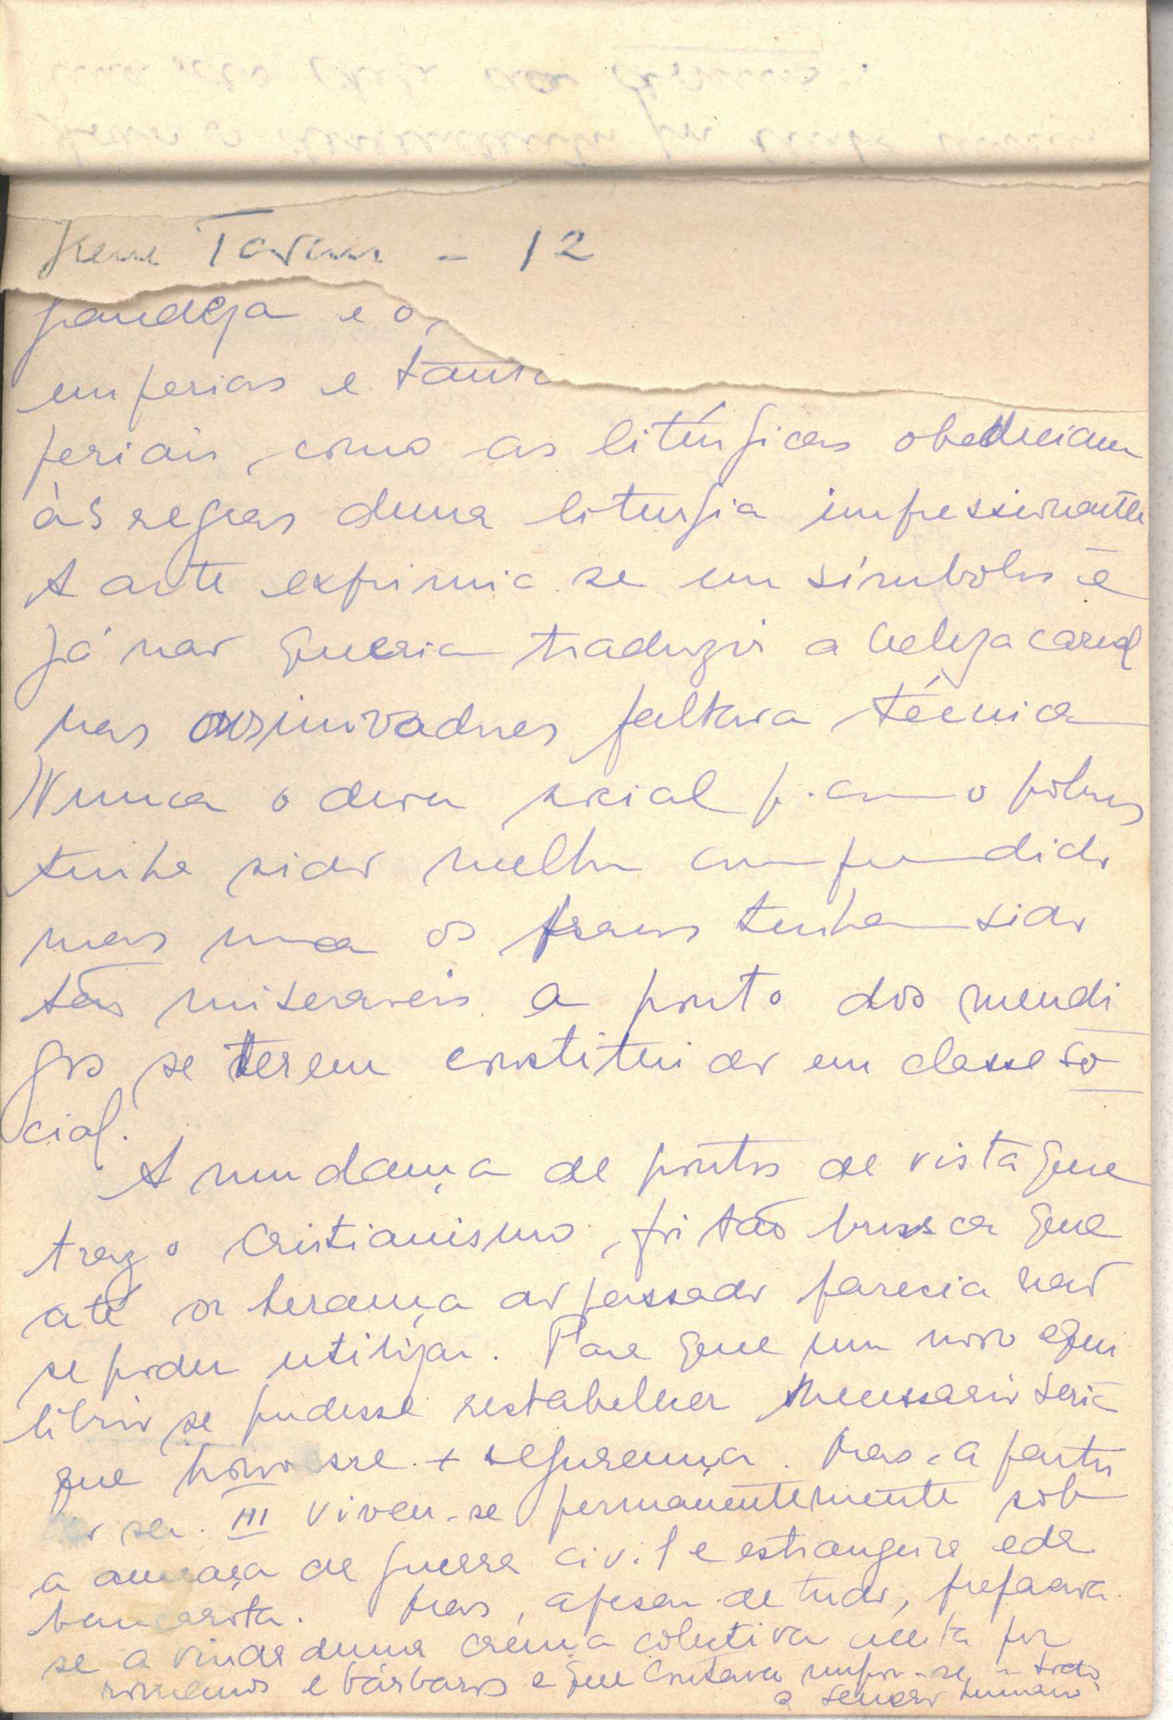 Irene Tavares - 12
grandeza e o
imperiais e tanto
periais, como as litúrgicas obedeciam
às regras duma liturgia impressionante
A arte exprimia se em símbolos e
já não queria traduzir a beleza carnal
mas aos inovadores faltava técnica
Nunca o dever social p. com o pobres
tinha sido melhor compreendido
mas nunca os fracos tinham sido
tão miseraveis a ponto dos mendi
gos se terem constituido em classe so
cial.
A mudança de pontos de vista que
traz o Cristianismo, foi tão brusca que
até a herança do passado parecia não
se poder utilizar. Para que um novo equi
líbrio se pudesse restabelecer necessario seria
que houvesse + segurança. Mas a partir
do sec. III viveu-se permanentemente sob
a ameaça de guerra civil e estrangeira e da
bancarrota. Mas, apesar de tudo, preparava
se a vinda duma crença colectiva aceita por
romanos e bárbaros e que buscava impor-se a todo
o senso humano